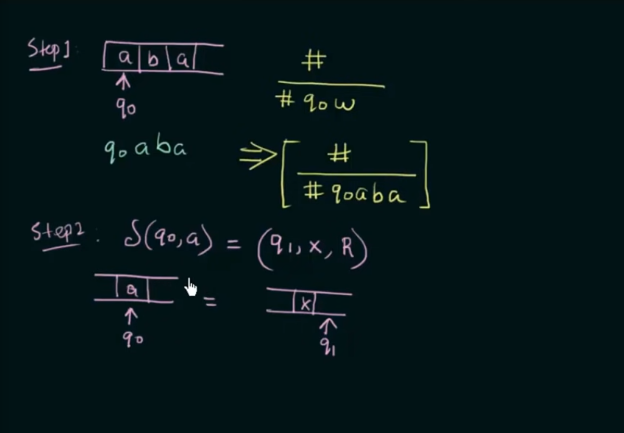 Step1: a b a
q0
#
# q0 w
q0 a b a ⇒ [ #
# q0 a b a ]
Step2: δ(q0, a) = (q1, x, R)
a = x
q0 q1